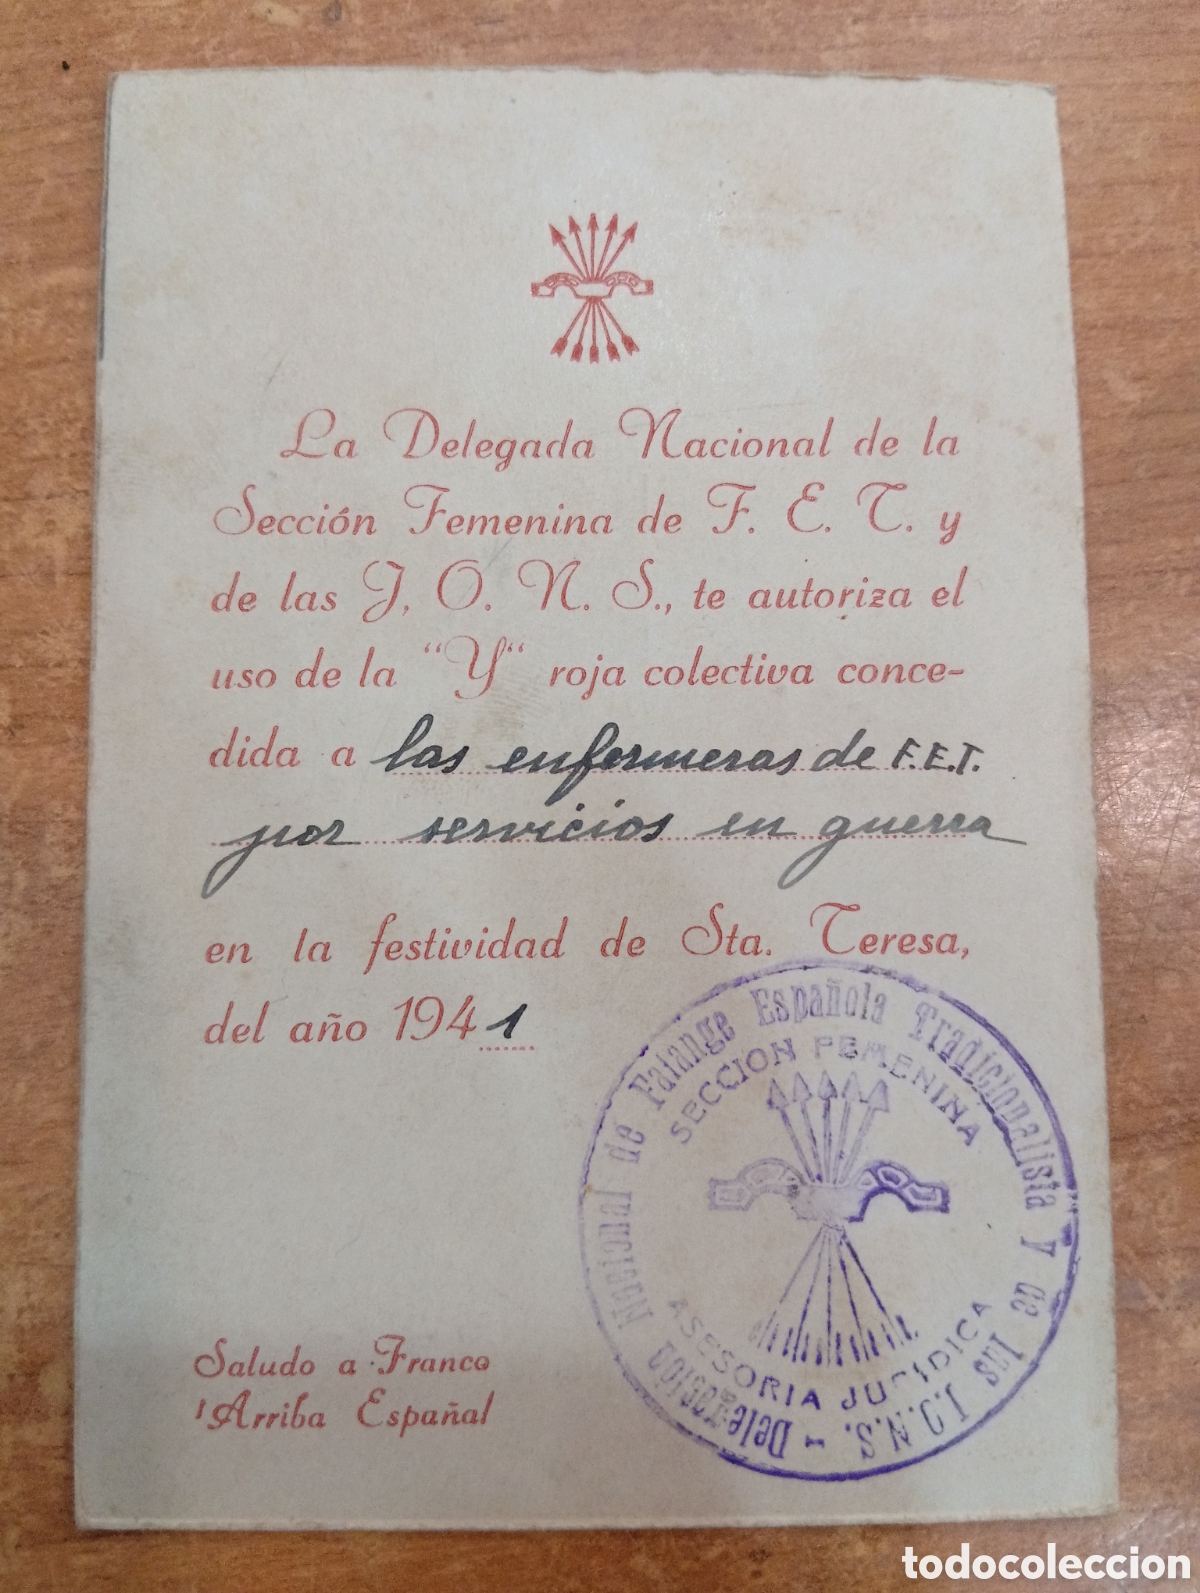 La Delegada Nacional de la
Sección Femenina de F. E. T. y
de las J. O. N. S., te autoriza el
uso de la "Y" roja colectiva conce-
dida a las enfermeras de F.E.T.
por servicios en guerra
en la festividad de Sta. Teresa,
del año 1941
Saludo a Franco
¡Arriba España!
Delegación Nacional de Falange Española Tradicionalista y de las J.O.N.S. -
SECCION FEMENINA
ASESORIA JURIDICA
todocoleccion